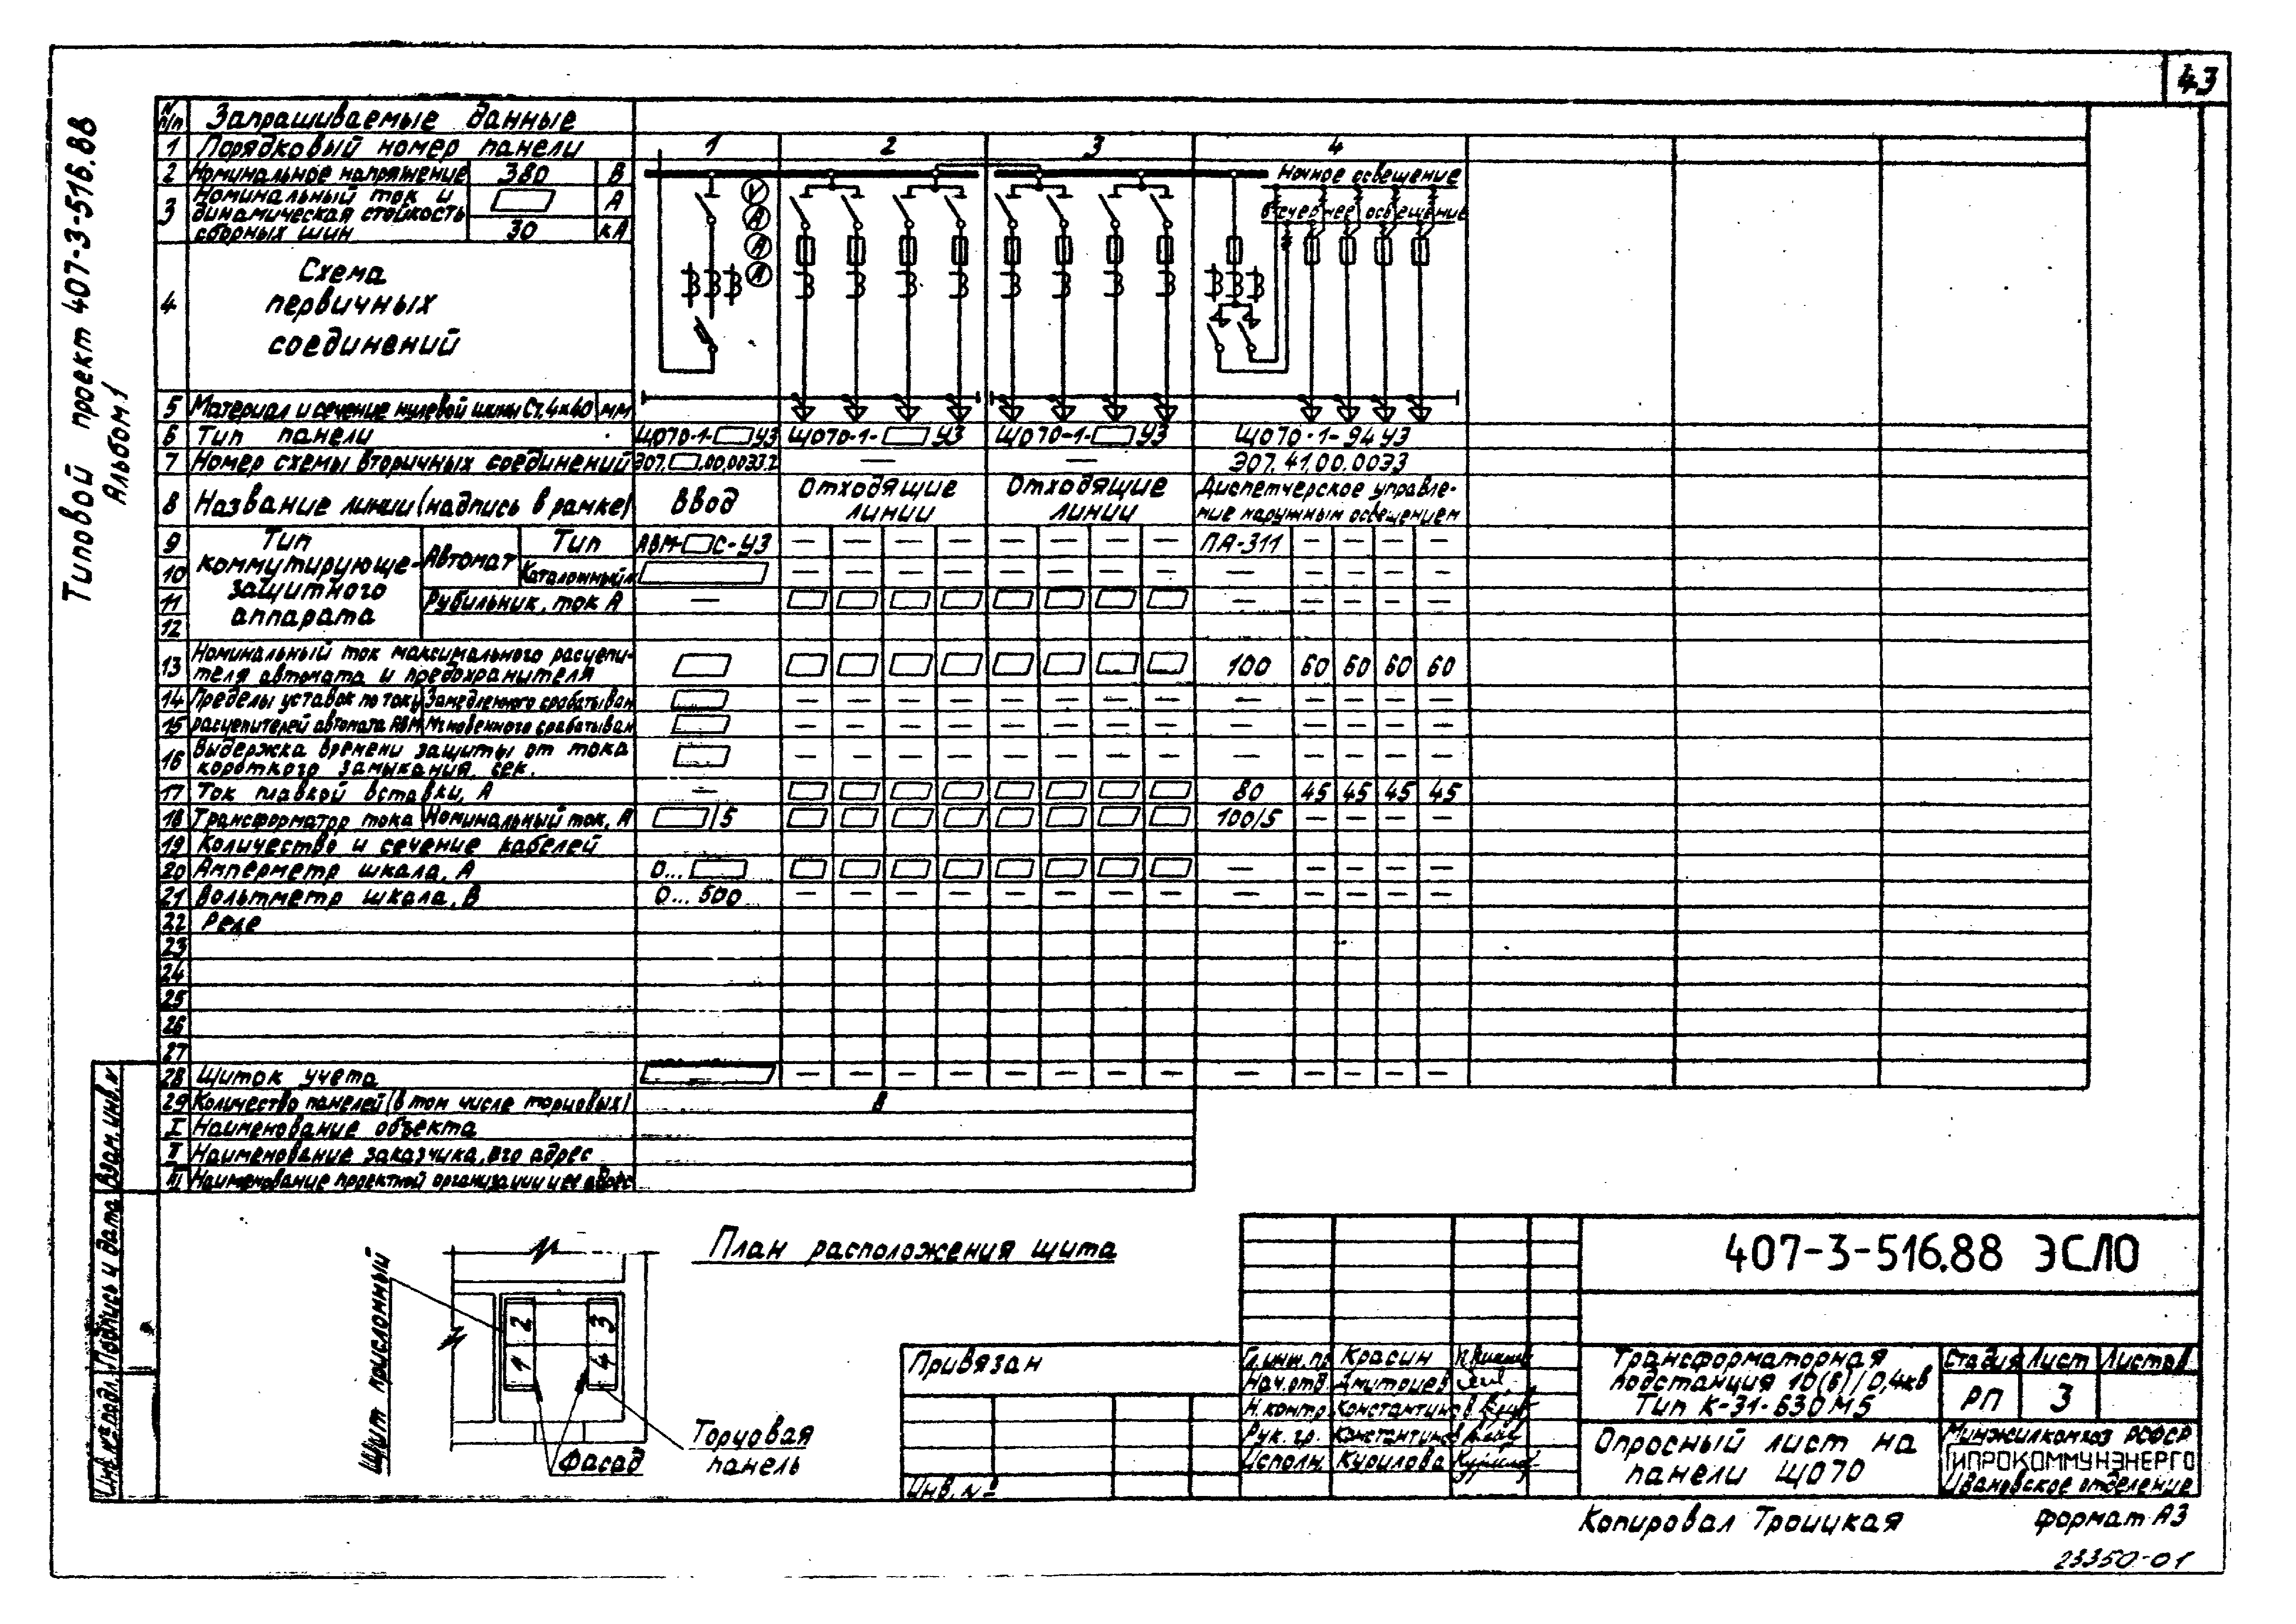 43
Типовой проект 407-3-516.88
Альбом 1
N п/п Запрашиваемые данные
1 Порядковый номер панели 1 2 3 4
2 Номинальное напряжение 380 В
3 Номинальный ток и динамическая стойкость сборных шин А
30 кА
4 Схема первичных соединений
V
А
А
А
Ночное освещение
Вечернее освещение
5 Материал и сечение нулевой шины Ст. 4х40 мм
6 Тип панели ЩО70-1- У3 ЩО70-1- У3 ЩО70-1- У3 ЩО70-1-94 У3
7 Номер схемы вторичных соединений Э07. .00.00Э3.2 — — Э07.41.00.00Э3
8 Название линии (надпись в рамке) Ввод Отходящие линии Отходящие линии Диспетчерское управле-
ние наружным освещением
9 Тип коммутирующе-защитного аппарата Автомат Тип АВМ- С-У3 — — — — — — — — ПА-311 — — — —
10 Каталожный № — — — — — — — — — — — — —
11 Рубильник, ток А — — — — — —
12
13 Номинальный ток максимального расцепи-
теля автомата и предохранителя 100 60 60 60 60
14 Пределы уставок по току Замедленного срабатыван — — — — — — — — — — — — —
15 расцепителей автомата АВМ Мгновенного срабатыван — — — — — — — — — — — — —
16 Выдержка времени защиты от тока
короткого замыкания, сек. — — — — — — — — — — — — —
17 Ток плавкой вставки, А — 80 45 45 45 45
18 Трансформатор тока Номинальный ток, А /5 100/5 — — — —
19 Количество и сечение кабелей
20 Амперметр шкала, А 0... — — — — —
21 Вольтметр шкала, В 0... 500 — — — — — — — — — — — — —
22 Реле
23
24
25
26
27
28 Щиток учета — — — — — — — — — — — — —
29 Количество панелей (в том числе торцовых)
I Наименование объекта
II Наименование заказчика, его адрес
III Наименование проектной организации и ее адрес
Взам. инв. №
Подпись и дата
Инв. № подл.
План расположения щита
Щит прислонный
2 3
1 4
Фасад
Торцовая
панель
Привязан
Инв. №
407-3-516.88 ЭСЛО
Гл. инж. пр Красин
Нач. отд. Дмитриев
Н. контр. Константинов
Рук. гр. Константинов
Исполн. Курилова
Трансформаторная
подстанция 10(6)/0,4кв
Тип К-31-630 М5
Стадия Лист Листов
РП 3
Опросный лист на
панели ЩО70
Минжилкомхоз РСФСР
ГИПРОКОММУНЭНЕРГО
Ивановское отделение
Копировал Троицкая формат А3
23350-01